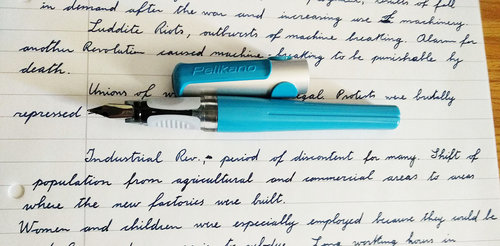 in demand after the war and increasing use of machinery.
Luddite Riots, outbursts of machine breaking. Alarm for
another Revolution caused machine breaking to be punishable by
death.
Pelikano
Unions of illegal. Protests were brutally
repressed
Industrial Rev., period of discontent for many. Shift of
population from agricultural and commercial areas to areas
where the new factories were built.
Women and children were especially employed because they could be
Long working hours in